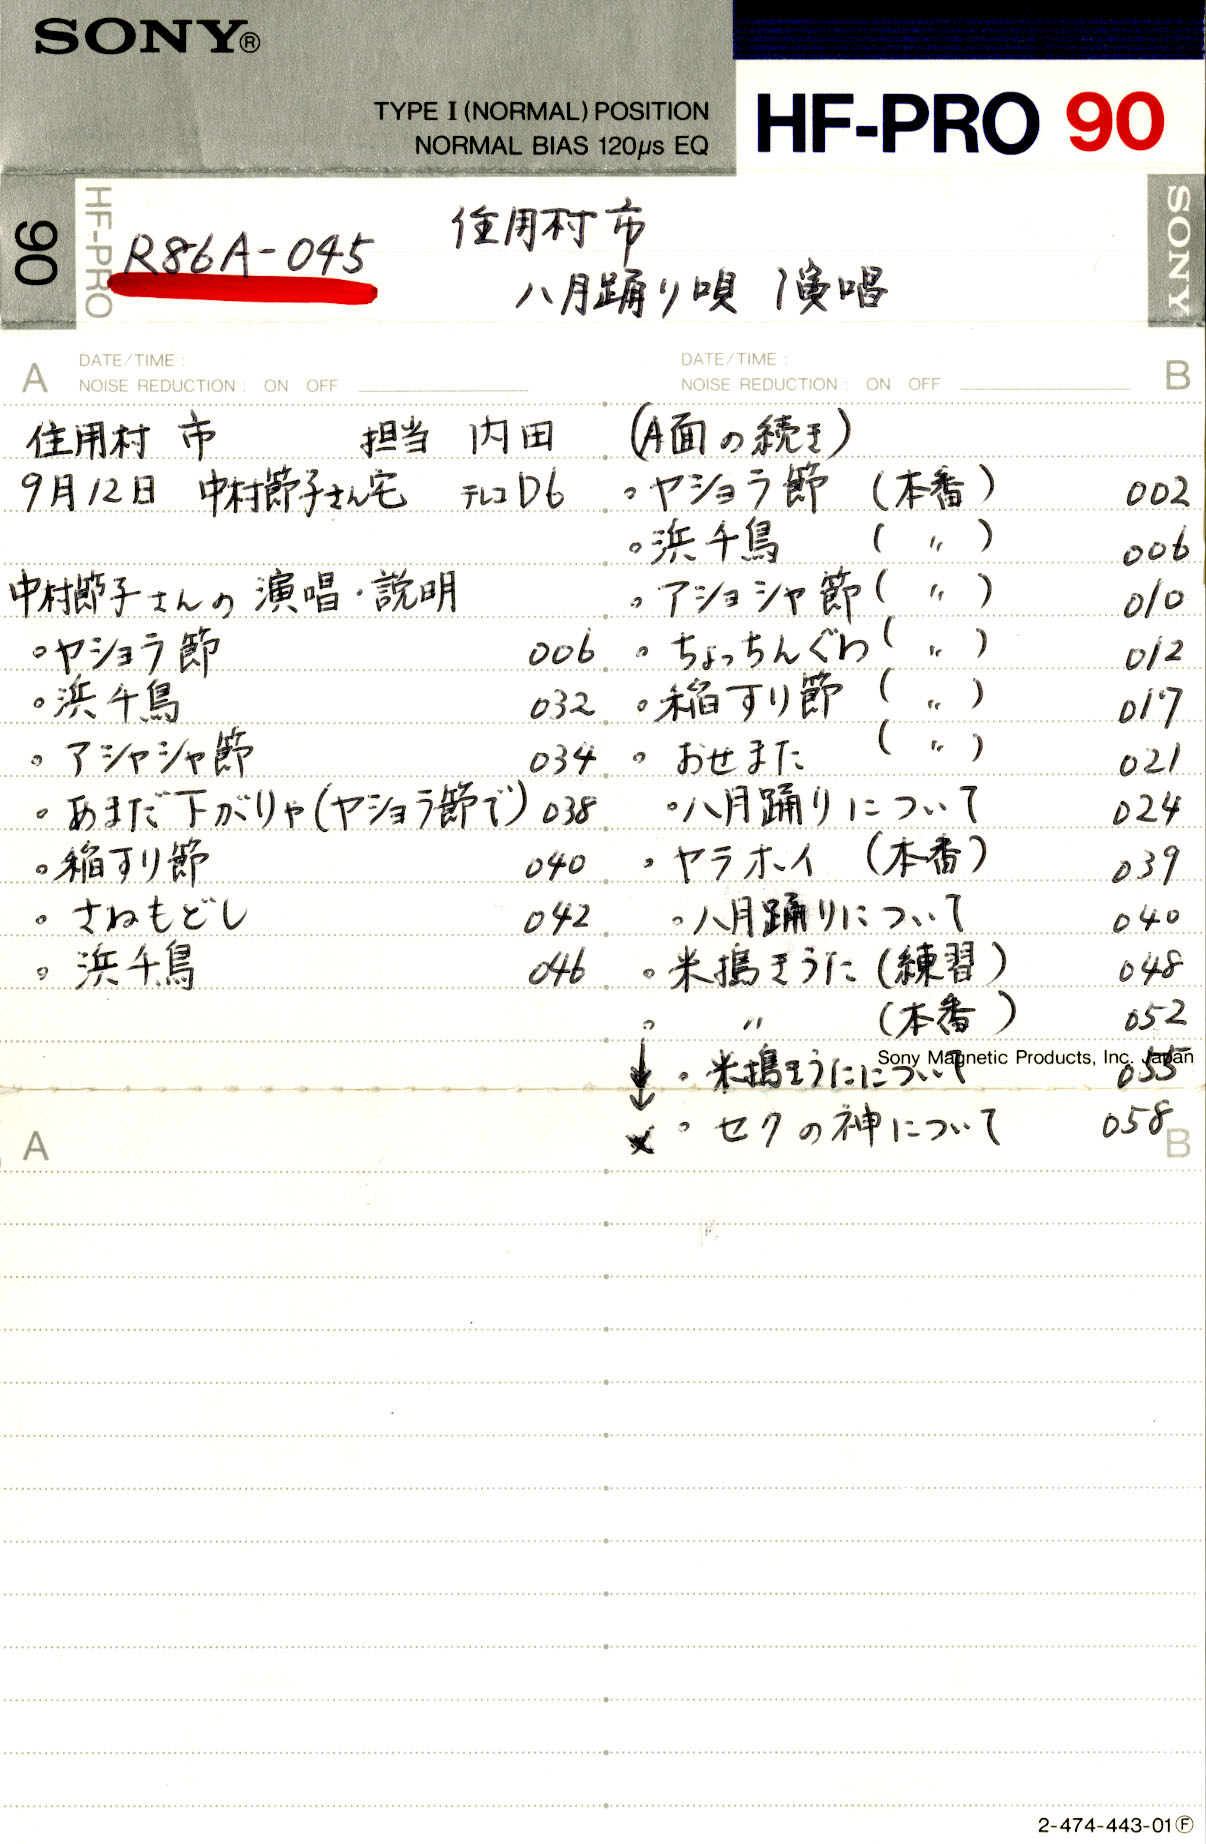 SONY®
TYPE I (NORMAL) POSITION
NORMAL BIAS 120µs EQ
HF-PRO 90
90
HF-PRO
R86A-045
住用村 市
八月踊り唄 演唱
SONY
A
DATE/TIME :
NOISE REDUCTION : ON OFF
住用村 市 担当 内田
9月12日 中村節子さん宅 テレコD6
中村節子さんの演唱・説明
○ヤショラ節 006
○浜千鳥 032
○アシャシャ節 034
○あまだ下がりゃ(ヤショラ節で) 038
○稲すり節 040
○さねもどし 042
○浜千鳥 046
A
DATE/TIME :
NOISE REDUCTION : ON OFF
B
(A面の続き)
○ヤショラ節 (本番) 002
○浜千鳥 ( 〃 ) 006
○アショシャ節 ( 〃 ) 010
○ちょっちんぐわ ( 〃 ) 012
○稲すり節 ( 〃 ) 017
○おせまた ( 〃 ) 021
○八月踊りについて 024
○ヤラホイ (本番) 039
○八月踊りについて 040
○米搗きうた (練習) 048
○ 〃 (本番) 052
Sony Magnetic Products, Inc. Japan
↓○米搗きうたについて 055
×○セクの神について 058
B
2-474-443-01Ⓕ